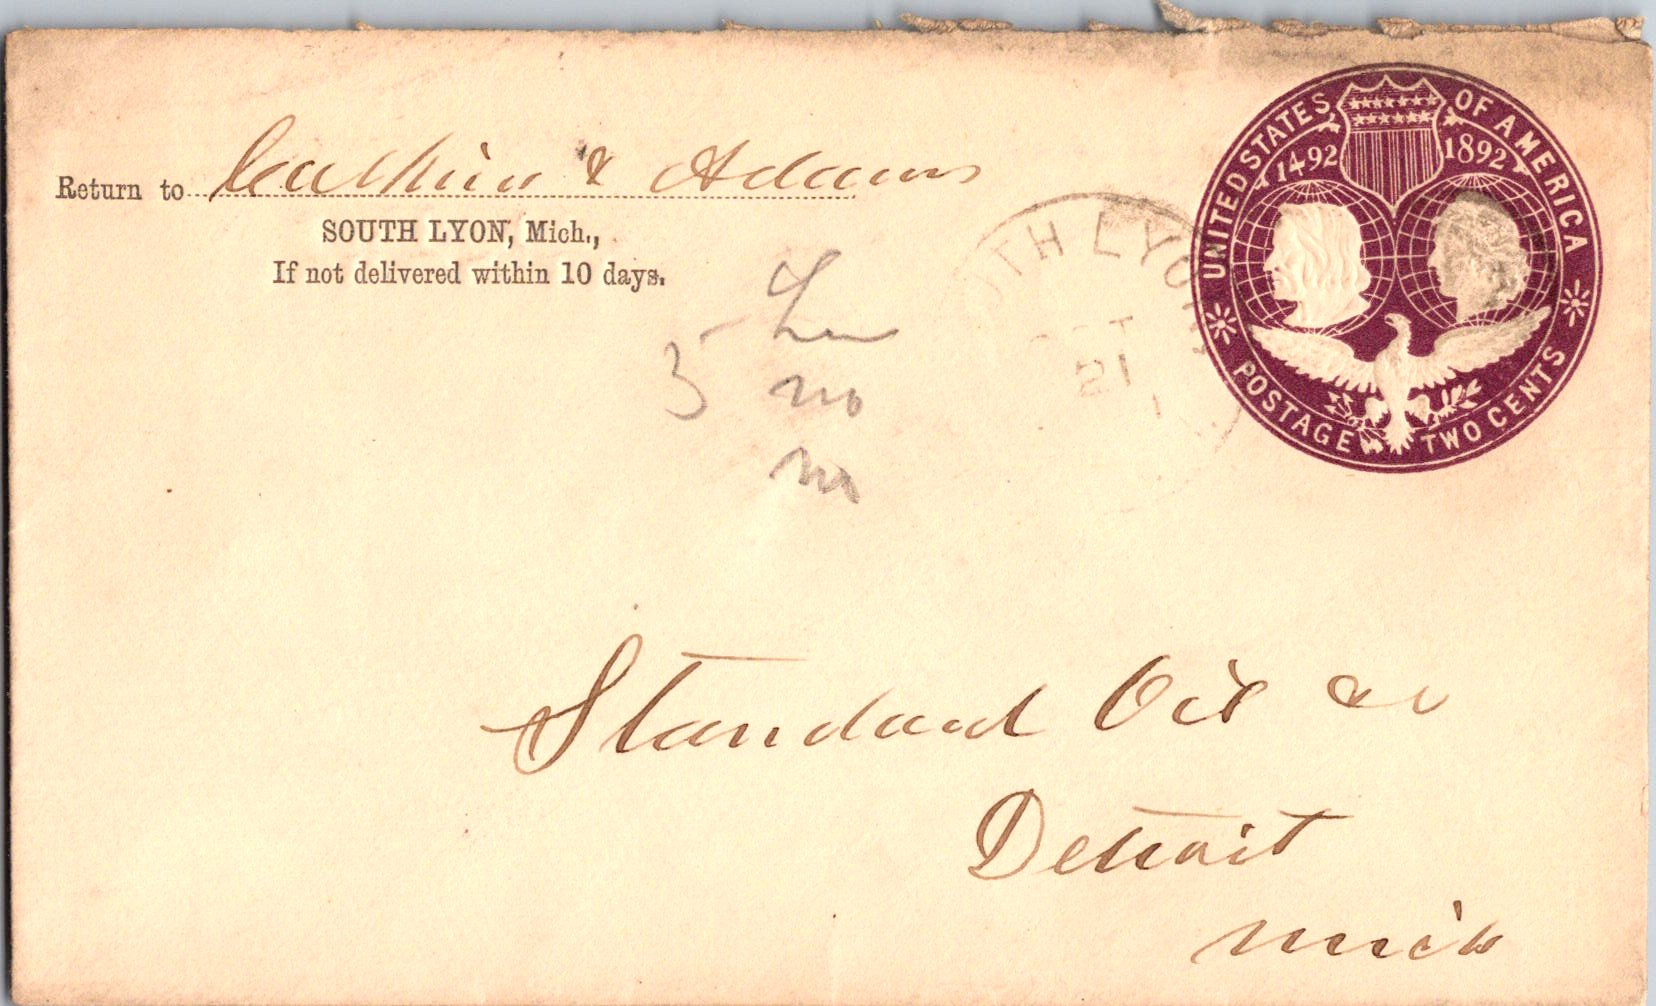 Return to Calkins & Adams
SOUTH LYON, Mich.,
If not delivered within 10 days.
UNITED STATES OF AMERICA
1492 1892
POSTAGE TWO CENTS
UTH LYON
OCT
21
5
no
no
Standard Oil Co
Detroit
Mich